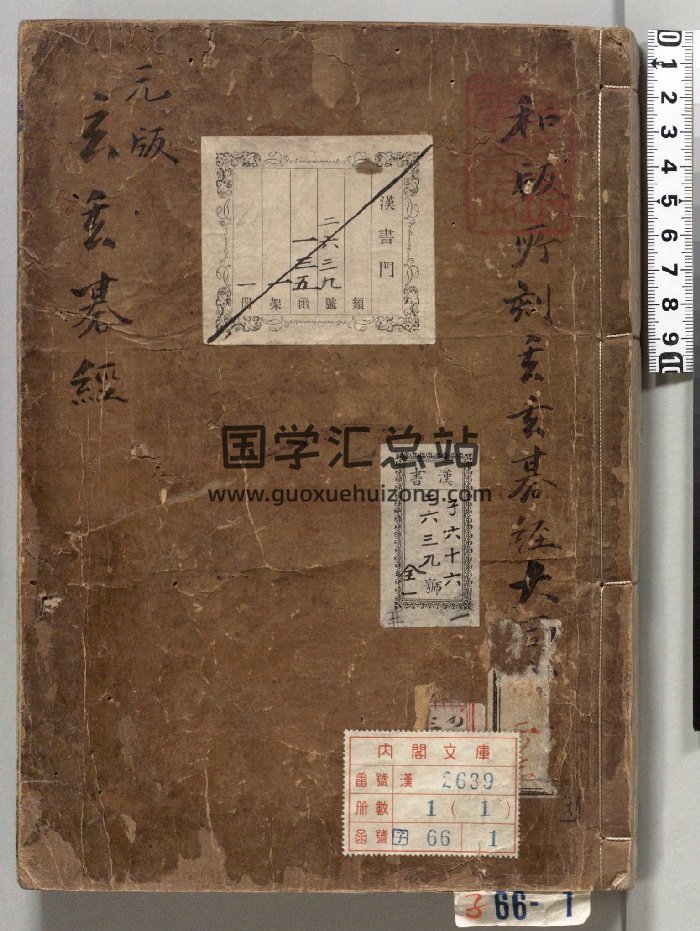 和版所刻玄玄碁経大
元版
玄玄碁經
漢書門
二六三九
一三五
一
一
類
號
函
架
冊
漢書
子六十六
二六三九號
全一
国学汇总站
www.guoxuehuizong.com
内閣文庫
番號 漢 2639
冊數 1 ( 1 )
函號 子 66 1
66- 1
0 1 2 3 4 5 6 7 8 9 10